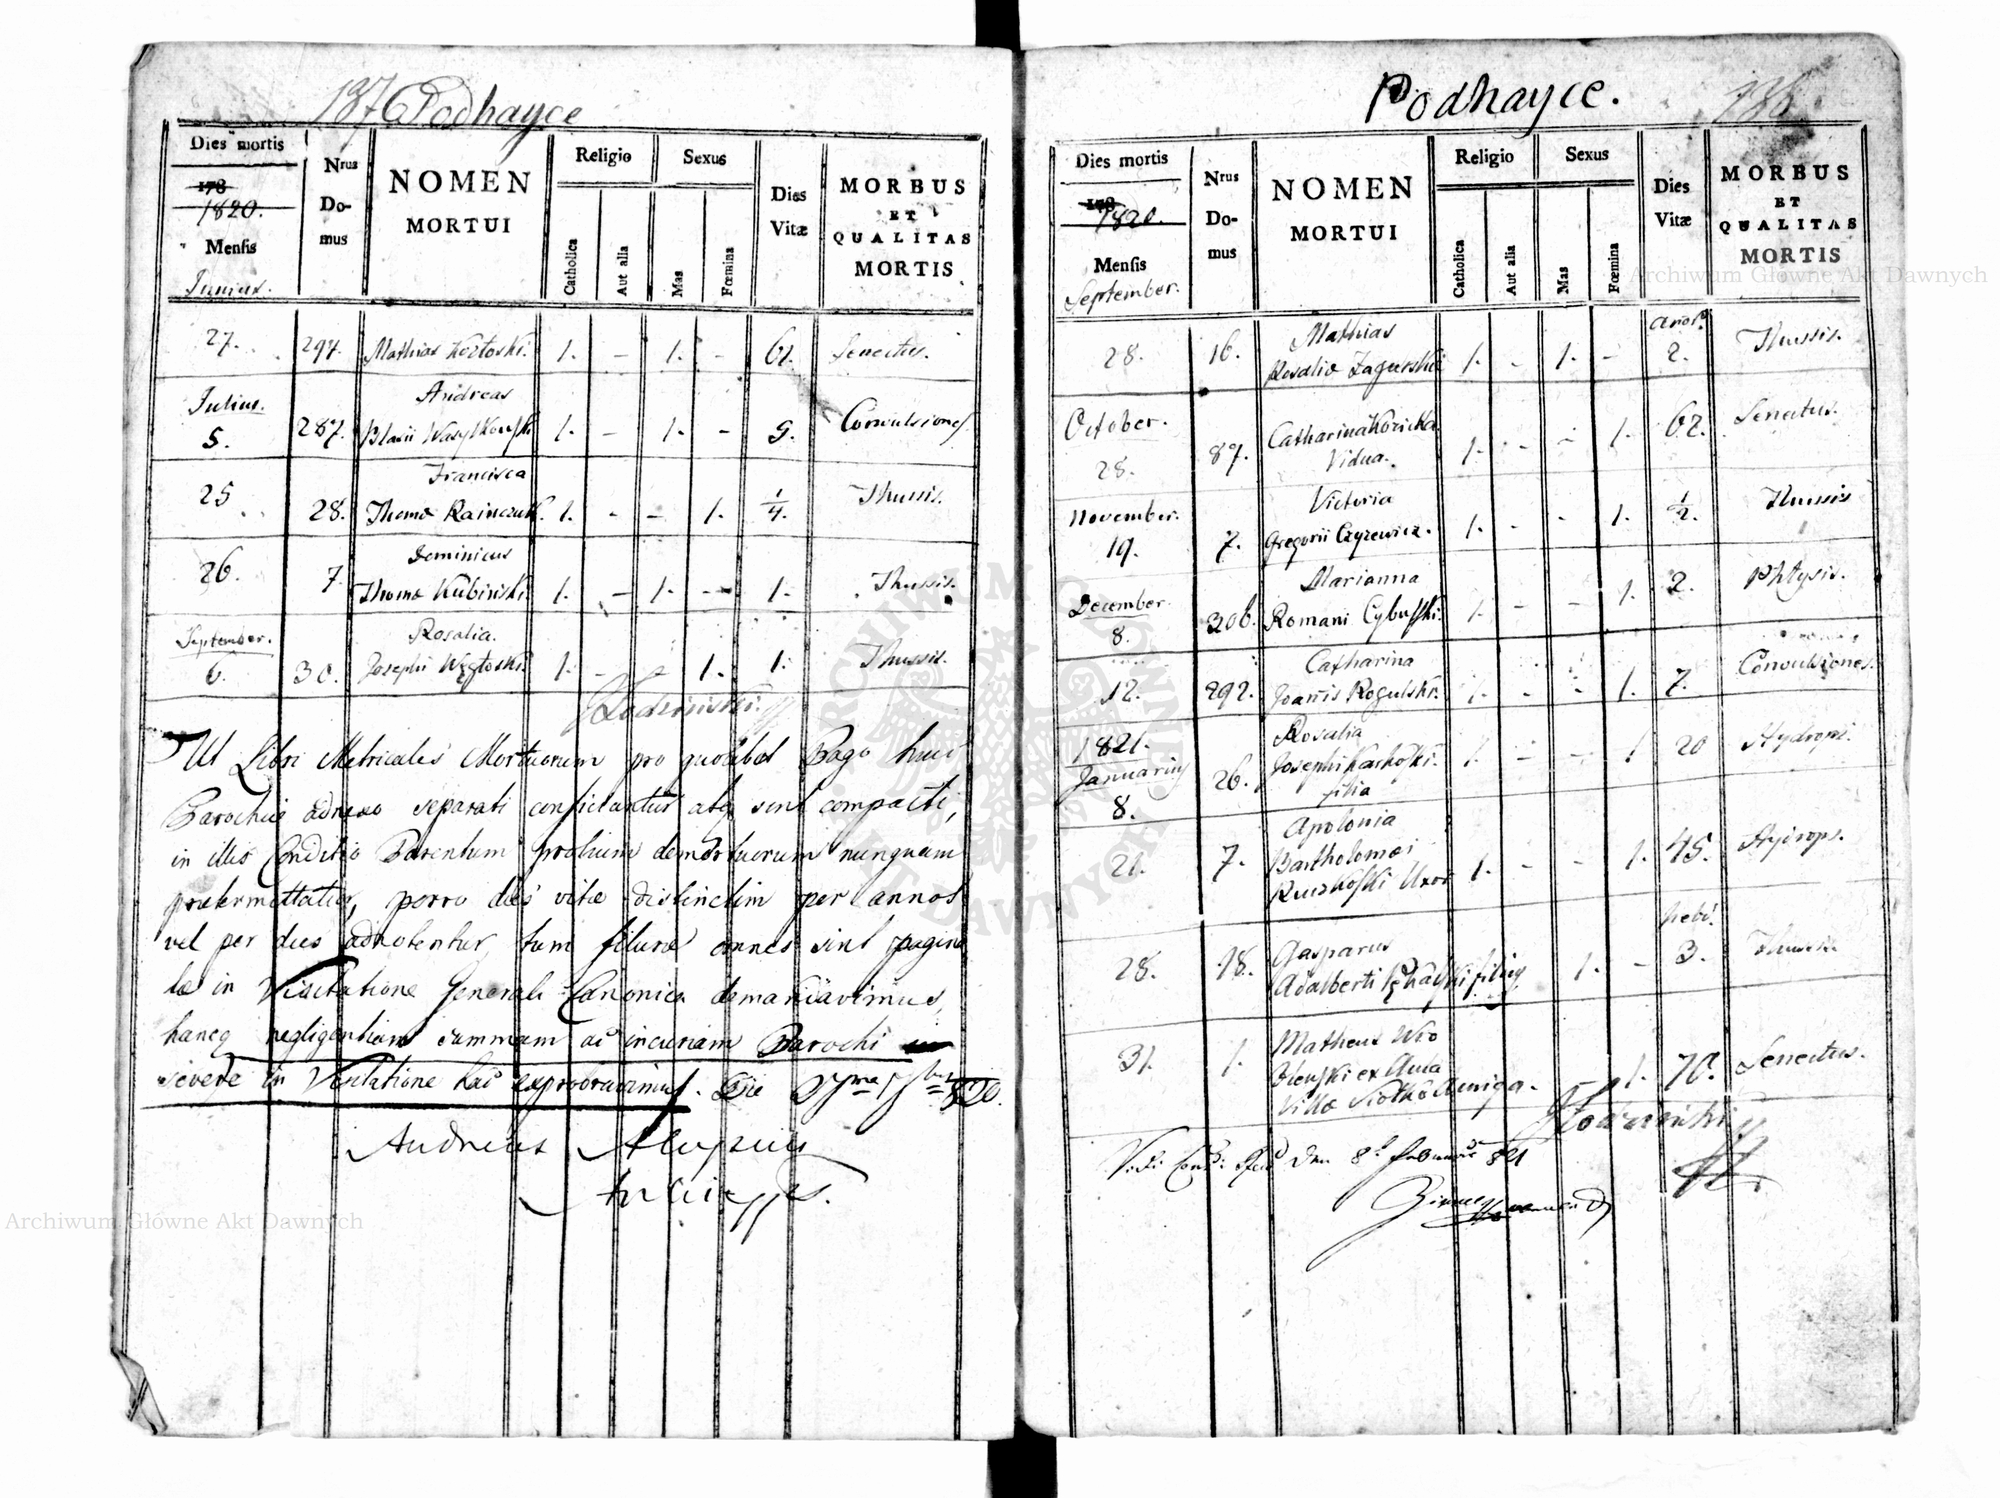 137 Podhayce
Dies mortis
178
1820.
Mensis
Junius.
Nrus
Do-
mus
NOMEN
MORTUI
Religio
Catholica
Aut alia
Sexus
Mas
Fœmina
Dies
Vitæ
MORBUS
ET
QUALITAS
MORTIS
27. 297. Mathias 1. - 1. - 61. Senectus.
Julius. Andreas
5. 287. Blasii Wasylkowski 1. - 1. - 5. Convulsiones.
Francisca
25 28. Thoma Rainczuk. 1. - - 1. 1/4. Thussis.
Dominicus
26. 7 Thoma Kubinski. 1. - 1. - 1. Thussis.
September. Rosalia.
6. 30. Josephi 1. - - 1. 1. Thussis.
Ut Libri Metricales Mortuorum pro quolibet Pago huic
Parochiæ adnexo separati conficiantur atq sint compacti,
in illis Conditio Parentum prolium demortuorum nunquam
prætermittatur, porro dies vitæ distinctim per annos
vel per dies adnotentur, tum filuræ omnes sint pagina
tæ in Visitatione Generali Canonica demandavimus,
hancq negligentiam summam ac incuriam Parochi
severe in Visitatione hac exprobravimus. Die 820.
Andreas Aloysius
Podhayce.
Dies mortis
178
1820.
Mensis
September.
Nrus
Do-
mus
NOMEN
MORTUI
Religio
Catholica
Aut alia
Sexus
Mas
Fœmina
Dies
Vitæ
MORBUS
ET
QUALITAS
MORTIS
Mathias
28. 16. Rosaliæ Zagurski 1. - 1. - 2. Thussis.
October.
28. 87. Catharina Kozicka 1. - - 1. 62. Senectus.
Vidua.
November. Victoria
19. 7. Gregorii Czyzewicz. 1. - - 1. 1/2. Thussis
December. Marianna
8. 306. Romani Cybulski. 1. - - 1. 2. Phtysis.
Catharina
12. 292. Joannis Rogulski. 1. - - 1. 7. Convulsiones.
1821. Rosalia
Januarius 26. Josephi 1. - - 1 20 Hydrops.
8. filia
Apolonia
21. 7. Bartholomæi 1. - - 1. 45. Hydrops.
Uxor
Gasparus
28. 18. Adalberti filius 1. - 3. Thussis.
31. 1. Matheus 1. 70. Senectus.
ex Aula
Villæ Auriga.
821
Archiwum Główne Akt Dawnych
Archiwum Główne Akt Dawnych
ARCHIWUM GŁÓWNE AKT DAWNYCH